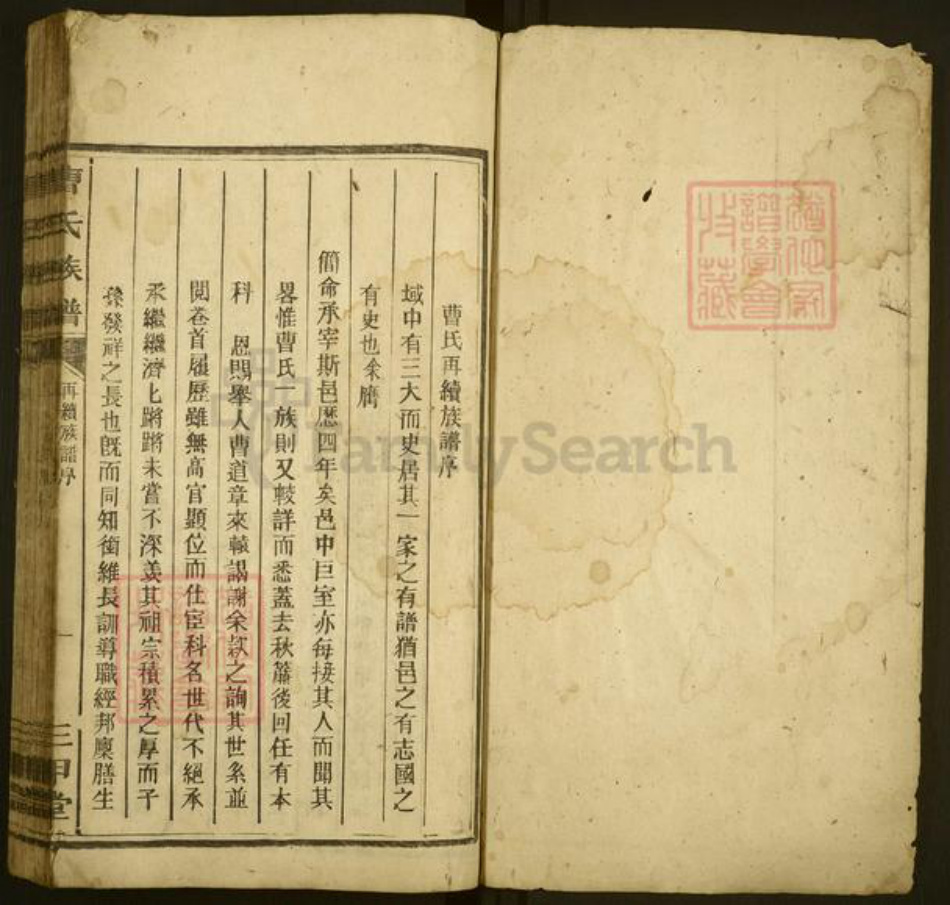 曹氏再續族譜序
域中有三大而史居其一家之有譜猶邑之有志國之
有史也余膺
簡命承宰斯邑歷四年矣邑中巨室亦每接其人而聞其
畧惟曹氏一族則又較詳而悉蓋去秋簾後回任有本
科 恩賜舉人曹道章來轅謁謝余欵之詢其世系並
閱卷首履歷雖無高官顯位而仕宦科名世代不絕承
承繼繼濟匕蹌蹌未嘗不深羨其祖宗積累之厚而子
孫發祥之長也既而同知銜維長訓導職經邦廩膳生
曹氏族譜
再續族譜序
一
三甲堂
譜學會
收藏
FamilySearch